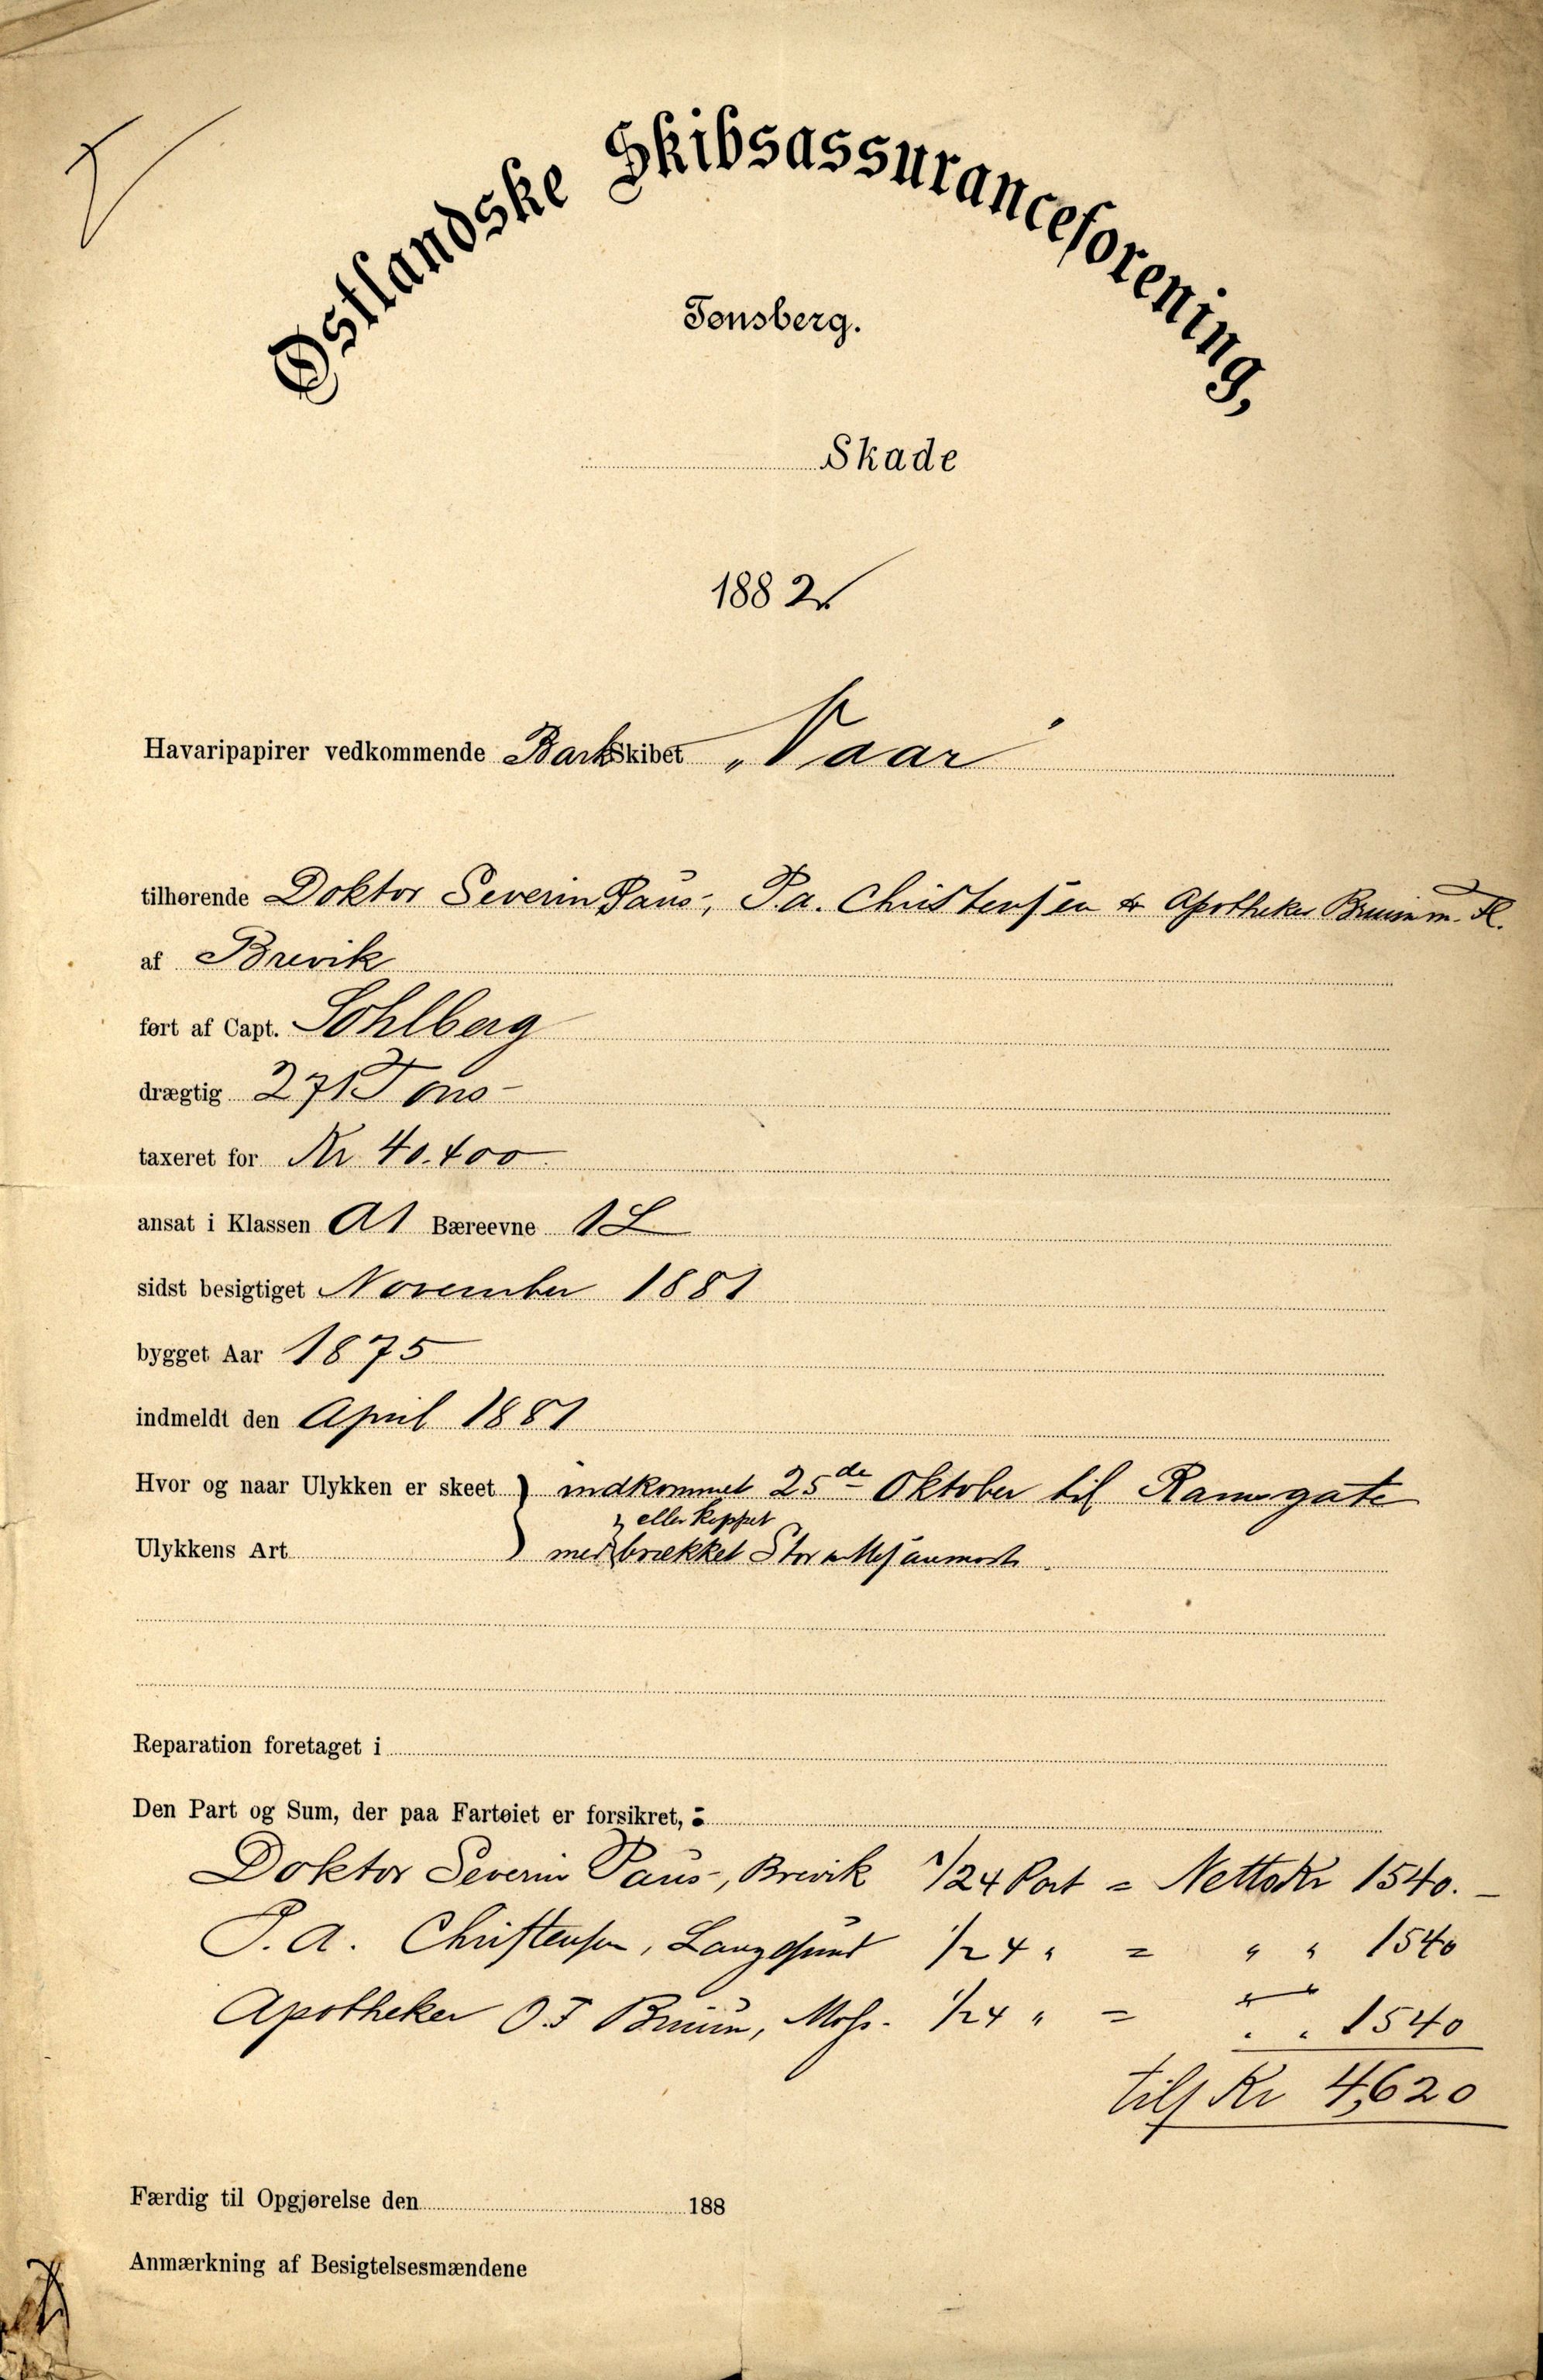 Østlandske Skibsassuranceforening,
Tønsberg.
Skade
1882
Havaripapirer vedkommende Bark Skibet „Vaar"
tilhørende Doktor Severin Paus, P.A. Christensen & Apotheker Bruun m. Fl.
af Brevik
ført af Capt. Sohlberg
drægtig 271 Tons
taxeret for Kr. 40.400
ansat i Klassen A1 Bæreevne 1L
sidst besigtiget November 1881
bygget Aar 1875
indmeldt den April 1881
Hvor og naar Ulykken er skeet } indkommet 25de Oktober til Ramsgate
eller kappet
Ulykkens Art } med brækket Stor & Mesanmast
Reparation foretaget i
Den Part og Sum, der paa Fartøiet er forsikret, :
Doktor Severin Paus, Brevik 1/24 Part = Netto Kr 1540.–
P.A. Christensen, Langesund 1/24 " = " " 1540
Apotheker Bruun, Moss. 1/24 " = " " 1540
tils Kr 4,620
Færdig til Opgjørelse den 188
Anmærkning af Besigtelsesmændene